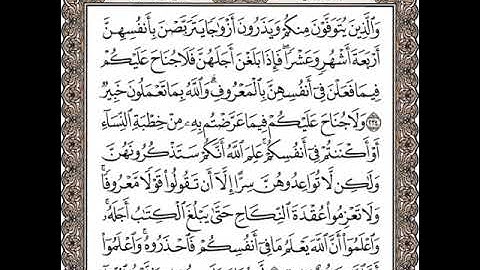 وَٱلَّذِينَ يُتَوَفَّوْنَ مِنكُمْ وَيَذَرُونَ أَزْوَٰجًا يَتَرَبَّصْنَ بِأَنفُسِهِنَّ
أَرْبَعَةَ أَشْهُرٍ وَعَشْرًا ۖ فَإِذَا بَلَغْنَ أَجَلَهُنَّ فَلَا جُنَاحَ عَلَيْكُمْ
فِيمَا فَعَلْنَ فِىٓ أَنفُسِهِنَّ بِٱلْمَعْرُوفِ ۗ وَٱللَّهُ بِمَا تَعْمَلُونَ خَبِيرٌ
٢٣٤ وَلَا جُنَاحَ عَلَيْكُمْ فِيمَا عَرَّضْتُم بِهِۦ مِنْ خِطْبَةِ ٱلنِّسَآءِ
أَوْ أَكْنَنتُمْ فِىٓ أَنفُسِكُمْ ۚ عَلِمَ ٱللَّهُ أَنَّكُمْ سَتَذْكُرُونَهُنَّ
وَلَٰكِن لَّا تُوَاعِدُوهُنَّ سِرًّا إِلَّآ أَن تَقُولُوا۟ قَوْلًا مَّعْرُوفًا ۚ
وَلَا تَعْزِمُوا۟ عُقْدَةَ ٱلنِّكَاحِ حَتَّىٰ يَبْلُغَ ٱلْكِتَٰبُ أَجَلَهُۥ ۚ
وَٱعْلَمُوٓا۟ أَنَّ ٱللَّهَ يَعْلَمُ مَا فِىٓ أَنفُسِكُمْ فَٱحْذَرُوهُ ۚ وَٱعْلَمُوٓا۟